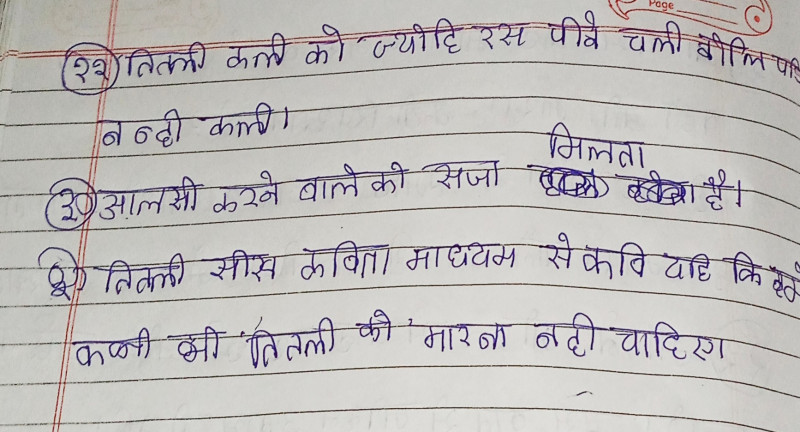 Page
२२) तितली कली को ज्योहि रस पीवे चली बोलि
न न्ही कली।
मिलता
३) आलसी करने वाले को सजा है।
३) तितली सीस कविता माध्यम से कवि यहि कि हमे
कभी भी तितली को मारना नही चाहिए